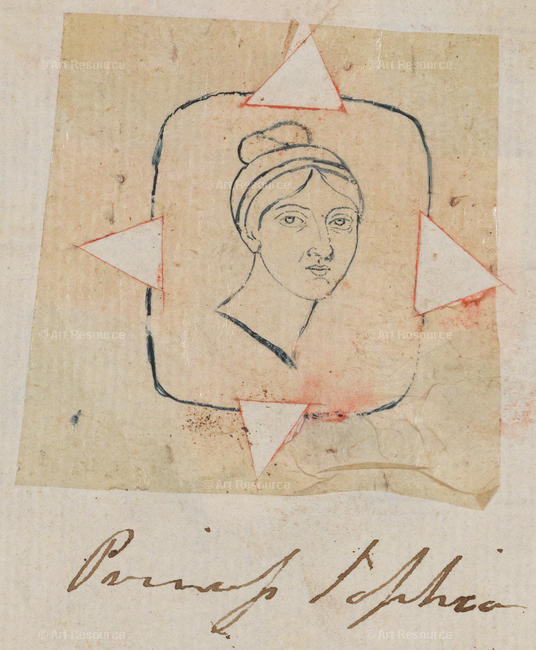 © Art Resource © Art Resource
© Art Resource
© Art Resource © Art Resource
© Art Resource
Princess Sophia
© Art Resource © Art Resource